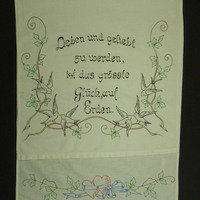 Leben und geliebt
zu werden,
ist das grösste
Glück, auf
Erden.